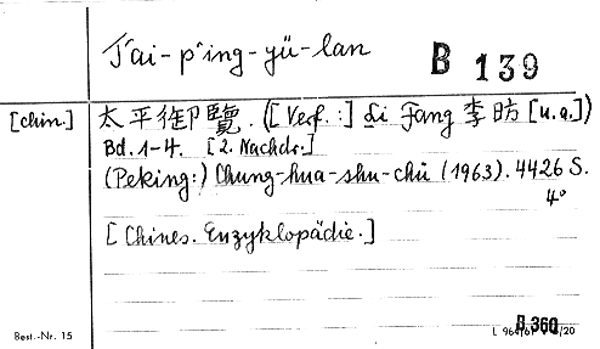 T'ai-p'ing-yü-lan
B 139
[chin.]
太平御覽. ([Verf.:] Li Fang 李昉 [u.a.])
Bd. 1-4. [2. Nachdr.]
(Peking:) Chung-hua-shu-chü (1963). 4426 S.
4°
[Chines. Enzyklopädie.]
B 360
Best.-Nr. 15